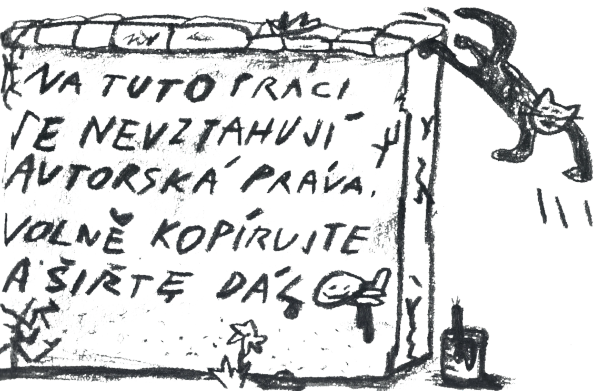 NA TUTO PRÁCI
SE NEVZTAHUJÍ
AUTORSKÁ PRÁVA.
VOLNĚ KOPÍRUJTE
A ŠIŘTE DÁL